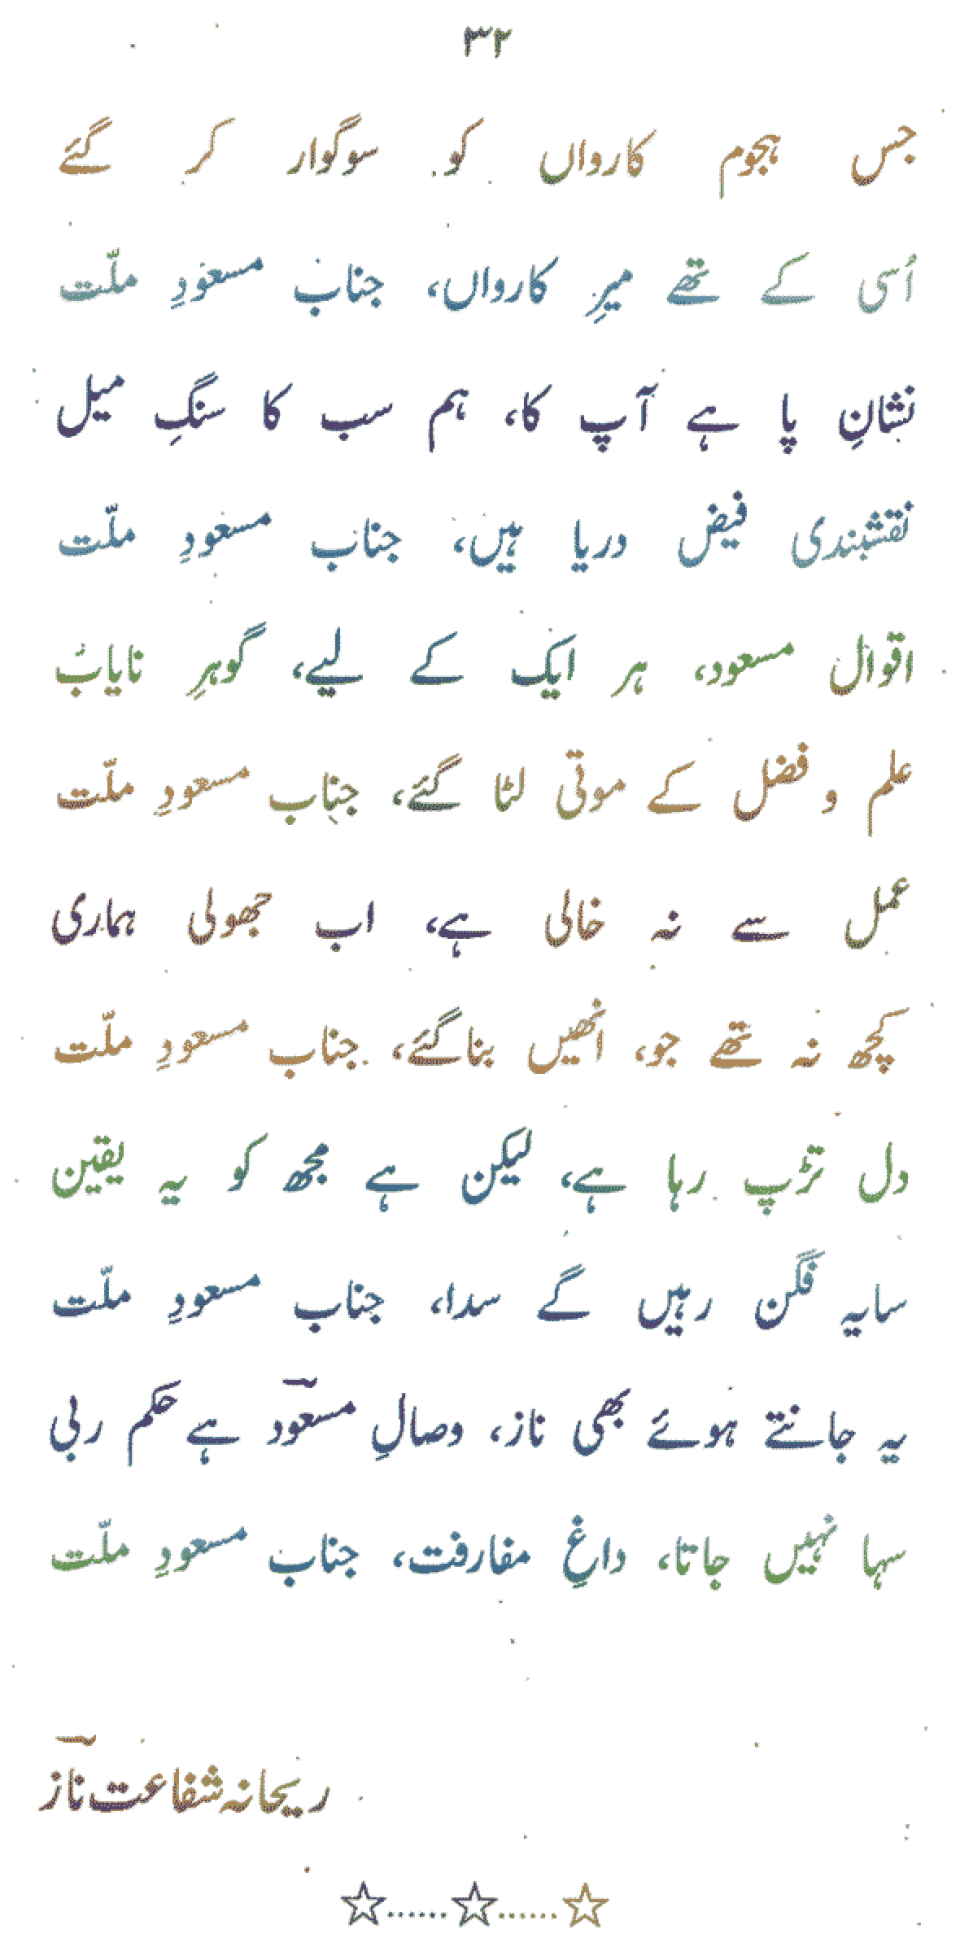 ۳۲
جس ہجوم کارواں کو سوگوار کر گئے
اُسی کے تھے میرِ کارواں، جناب مسعودِ ملّت
نشانِ پا ہے آپ کا، ہم سب کا سنگِ میل
نقشبندی فیض دریا ہیں، جناب مسعودِ ملّت
اقوال مسعود، ہر ایک کے لیے، گوہرِ نایاب
علم و فضل کے موتی لٹا گئے، جناب مسعودِ ملّت
عمل سے نہ خالی ہے، اب جھولی ہماری
کچھ نہ تھے جو، انھیں بنا گئے، جناب مسعودِ ملّت
دل تڑپ رہا ہے، لیکن ہے مجھ کو یہ یقین
سایہ فگن رہیں گے سدا، جناب مسعودِ ملّت
یہ جانتے ہوئے بھی ناز، وصالِ مسعودؔ ہے حکم ربی
سہا نہیں جاتا، داغِ مفارقت، جناب مسعودِ ملّت
ریحانہ شفاعت نازؔ
☆......☆......☆